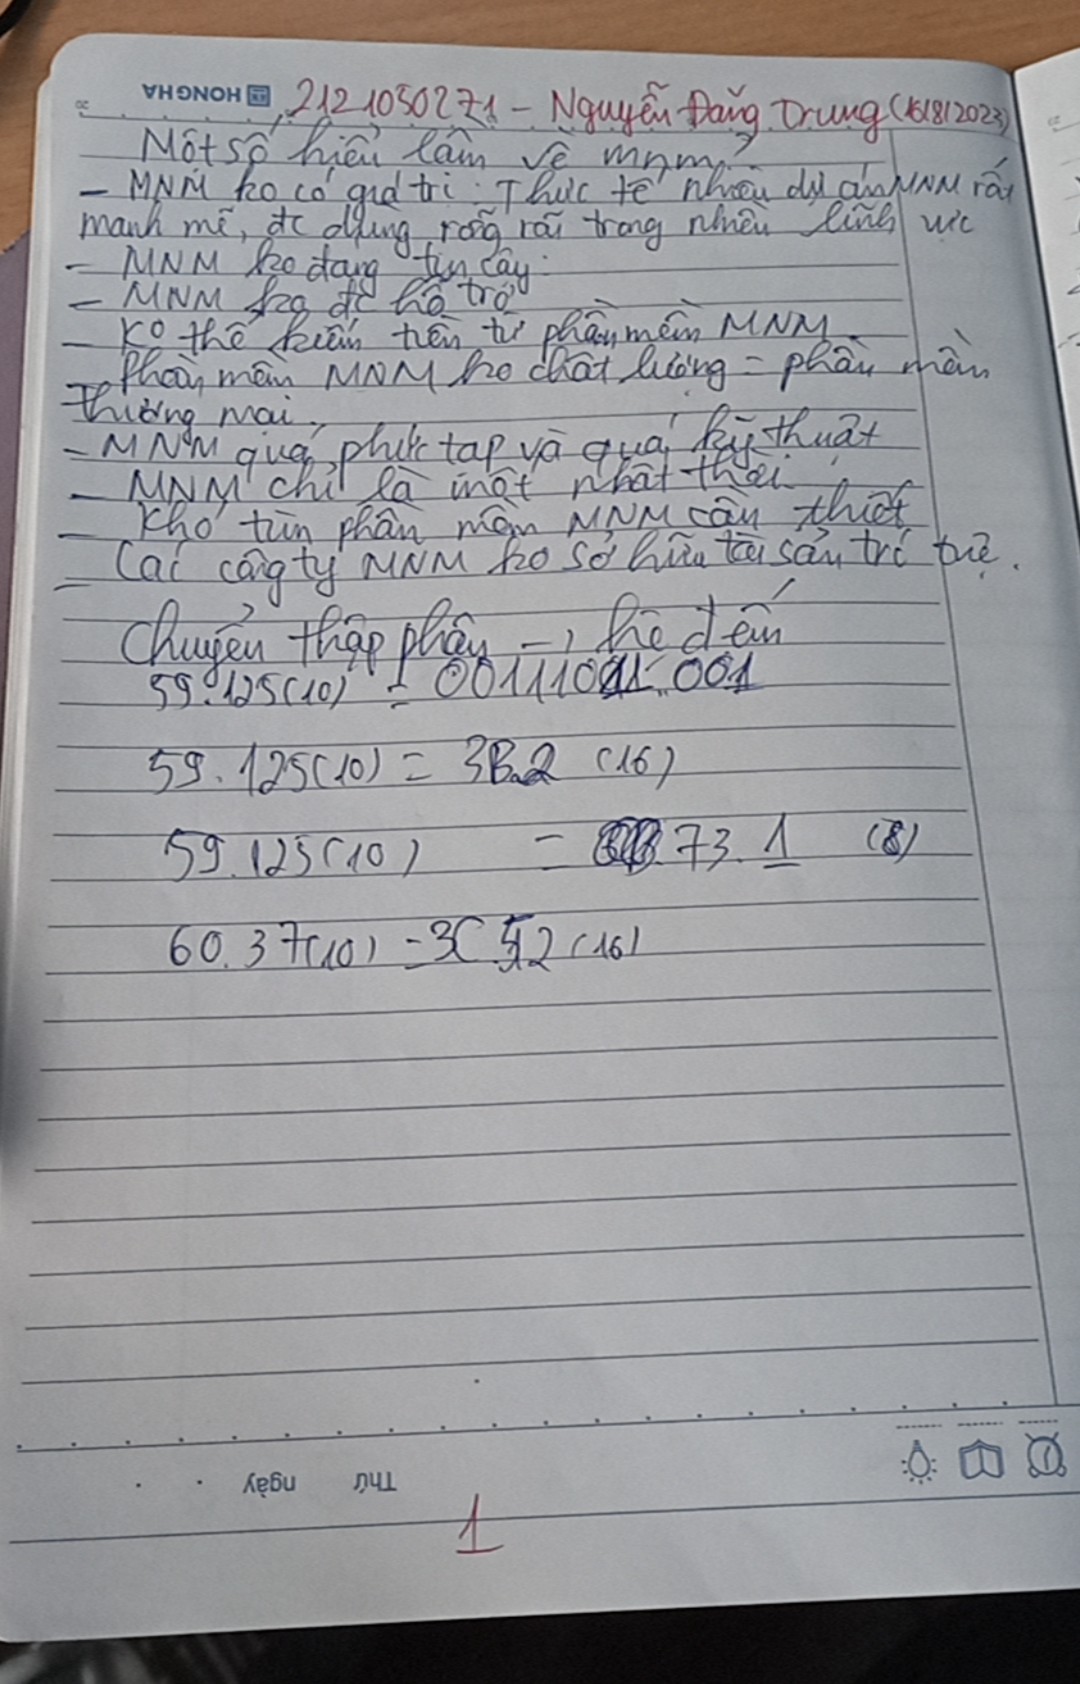 HONG HA 2121050271 - Nguyễn Đăng Trung (16/8/2023)
Một số hiểu lầm về mnm?
- MNM ko có giá trị : Thực tế nhiều dự án MNM rất
mạnh mẽ, đc dụng rộng rãi trong nhiều lĩnh vực
- MNM ko đáng tin cậy
- MNM ko đc hỗ trợ
- Ko thể kiếm tiền từ phần mềm MNM
- Phần mềm MNM ko chất lượng = phần mềm
thương mại.
- MNM quá phức tạp và quá kỹ thuật
- MNM chỉ là một nhất thời
- Khó tìm phần mềm MNM cần thiết
- Các công ty MNM ko sở hữu tài sản trí tuệ.
Chuyển thập phân -> hệ đếm
59.125(10) = 00111011.001
59.125(10) = 3B.2 (16)
59.125(10) = 73.1 (8)
60.37(10) = 3C.52 (16)
Thứ ngày
1